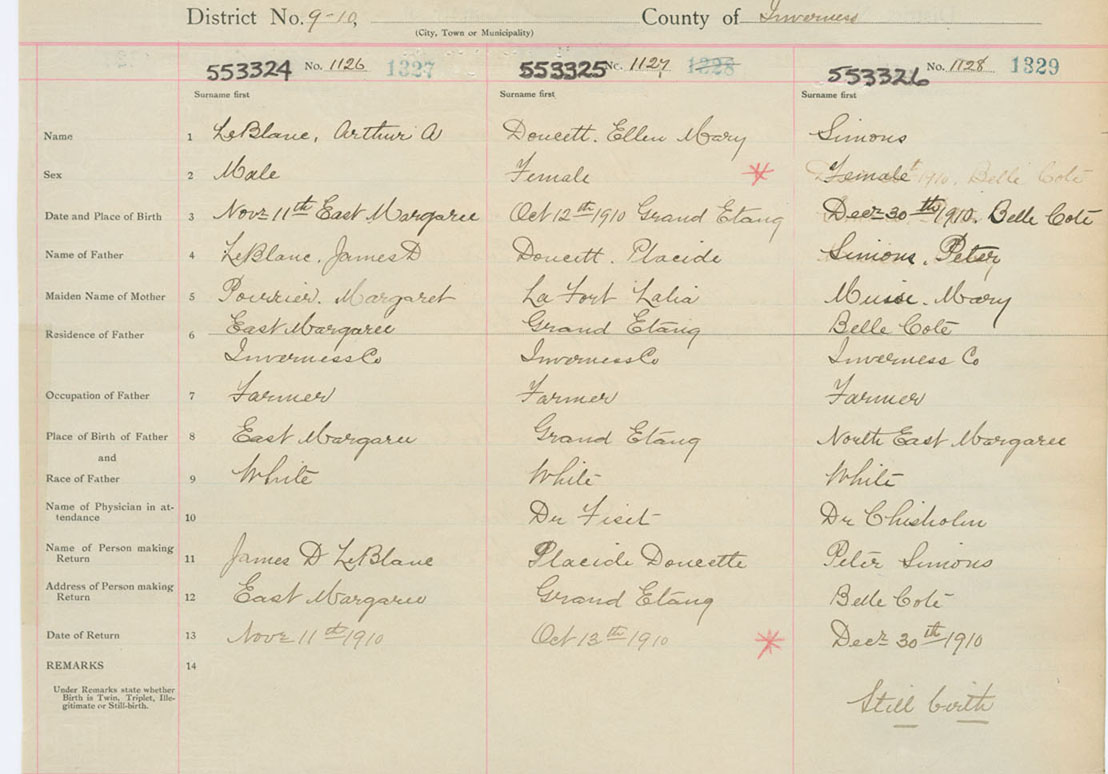 District No. 9-10, County of Inverness
(City, Town or Municipality)
553324 No. 1126 1327 553325 No. 1127 1328 553326 No. 1128 1329
Surname first Surname first Surname first
Name 1 LeBlanc, Arthur A Doucett. Ellen Mary Simons
Sex 2 Male Female Female
Date and Place of Birth 3 Novr 11th East Margaree Oct 12th 1910 Grand Etang Decr 30th 1910. Belle Coté
Name of Father 4 LeBlanc. James D Doucett. Placide Simons. Peter
Maiden Name of Mother 5 Pourrier. Margaret La Fort Lalia Muise. Mary
Residence of Father 6 East Margaree Grand Etang Belle Coté
Inverness Co Inverness Co Inverness Co
Occupation of Father 7 Farmer Farmer Farmer
Place of Birth of Father 8 East Margaree Grand Etang North East Margaree
and
Race of Father 9 White White White
Name of Physician in at-
tendance 10 Dr Fiset Dr Chisholm
Name of Person making
Return 11 James D LeBlanc Placide Doucette Peter Simons
Address of Person making
Return 12 East Margaree Grand Etang Belle Coté
Date of Return 13 Novr 11th 1910 Oct 13th 1910 Decr 30th 1910
REMARKS 14
Under Remarks state whether
Birth is Twin, Triplet, Ille-
gitimate or Still-birth.
Still birth